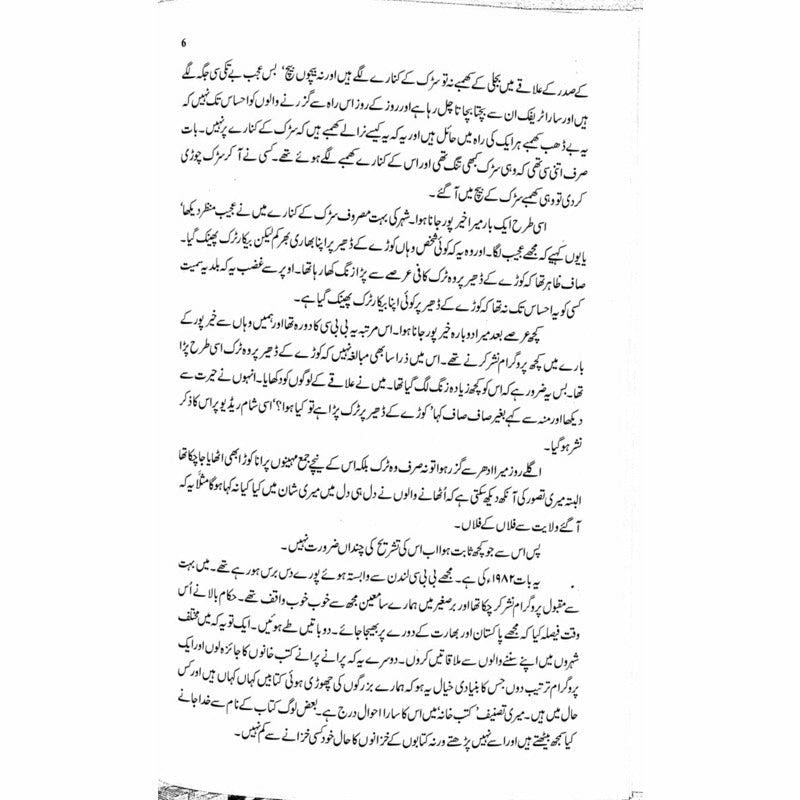 6
کے صدر کے علاقے میں بجلی کے کھمبے نہ تو سڑک کے کنارے لگے ہیں اور نہ بیچوں بیچ‘ بس عجب بے تکی سی جگہ لگے
ہیں اور سارا ٹریفک ان سے بچتا بچاتا چل رہا ہے اور روز کے روز اس راہ سے گزرنے والوں کو احساس تک نہیں کہ
یہ بے ڈھب کھمبے ہر ایک کی راہ میں حائل ہیں اور یہ کہ یہ کیسے نرالے کھمبے ہیں کہ سڑک کے کنارے پر نہیں۔ بات
صرف اتنی سی تھی کہ وہی سڑک کبھی تنگ تھی اور اس کے کنارے کھمبے لگے ہوئے تھے۔ کسی نے آ کر سڑک چوڑی
کر دی تو وہی کھمبے سڑک کے بیچ میں آ گئے۔
اسی طرح ایک بار میرا خیر پور جانا ہوا۔ شہر کی بہت مصروف سڑک کے کنارے میں نے عجیب منظر دیکھا‘
یا یوں کہیے کہ مجھے عجیب لگا۔ اور وہ یہ کہ کوئی شخص وہاں کوڑے کے ڈھیر پر اپنا بھاری بھرکم لیکن بیکار ٹرک پھینک گیا۔
صاف ظاہر تھا کہ کوڑے کے ڈھیر پر وہ ٹرک کافی عرصے سے پڑا زنگ کھا رہا تھا۔ اوپر سے غضب یہ کہ بلدیہ سمیت
کسی کو یہ احساس تک نہ تھا کہ کوڑے کے ڈھیر پر کوئی اپنا بیکار ٹرک پھینک گیا ہے۔
کچھ عرصے بعد میرا دوبارہ خیر پور جانا ہوا۔ اس مرتبہ یہ بی بی سی کا دورہ تھا اور ہمیں وہاں سے خیر پور کے
بارے میں کچھ پروگرام نشر کرنے تھے۔ اس میں ذرا سا بھی مبالغہ نہیں کہ کوڑے کے ڈھیر پر وہ ٹرک اسی طرح پڑا
تھا۔ بس یہ ضرور ہے کہ اس کو کچھ زیادہ زنگ لگ گیا تھا۔ میں نے علاقے کے لوگوں کو دکھایا۔ انہوں نے حیرت سے
دیکھا اور منہ سے کہے بغیر صاف صاف کہا ’کوڑے کے ڈھیر پر ٹرک پڑا ہے تو کیا ہوا؟‘ اسی شام ریڈیو پر اس کا ذکر
نشر ہو گیا۔
اگلے روز میرا ادھر سے گزر ہوا تو نہ صرف وہ ٹرک بلکہ اس کے نیچے جمع مہینوں پرانا کوڑا بھی اٹھایا جا چکا تھا
البتہ میری تصور کی آنکھ دیکھ سکتی ہے کہ اُٹھانے والوں نے دل ہی دل میں میری شان میں کیا کیا نہ کہا ہوگا مثلاً یہ کہ
آ گئے ولایت سے فلاں کے فلاں۔
پس اس سے جو کچھ ثابت ہوا اب اس کی تشریح کی چنداں ضرورت نہیں۔
یہ بات ۱۹۸۲ء کی ہے۔ مجھے بی بی سی لندن سے وابستہ ہوئے پورے دس برس ہو رہے تھے۔ میں بہت
سے مقبول پروگرام نشر کر چکا تھا اور برصغیر میں ہمارے سامعین مجھ سے خوب خوب واقف تھے۔ حکام بالا نے اُس
وقت فیصلہ کیا کہ مجھے پاکستان اور بھارت کے دورے پر بھیجا جائے۔ دو باتیں طے ہوئیں۔ ایک تو یہ کہ میں مختلف
شہروں میں اپنے سننے والوں سے ملاقاتیں کروں۔ دوسرے یہ کہ پرانے پرانے کتب خانوں کا جائزہ لوں اور ایک
پروگرام ترتیب دوں جس کا بنیادی خیال یہ ہو کہ ہمارے بزرگوں کی چھوڑی ہوئی کتابیں کہاں کہاں ہیں اور کس
حال میں ہیں۔ میری تصنیف ’کتب خانہ‘ میں اس کا سارا احوال درج ہے۔ بعض لوگ کتاب کے نام سے خدا جانے
کیا سمجھ بیٹھتے ہیں اور اسے نہیں پڑھتے ورنہ کتابوں کے خزانوں کا حال خود کسی خزانے سے کم نہیں۔